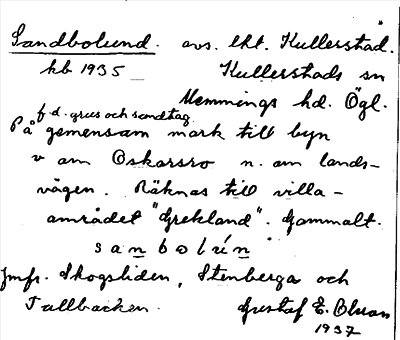 Sandbolund. avs. lht. Kullerstad.
kb 1935 — Kullerstads sn
Memmings hd. Ögl.
f.d. grus och sandtag.
På gemensam mark till byn
v om Oskarsro n. om lands-
vägen. Räknas till villa-
området "Grekland". Gammalt.
sanbolún
Jmfr. Skogsliden, Stenberga och
Tallbacken. Gustaf E. Olsson
1937